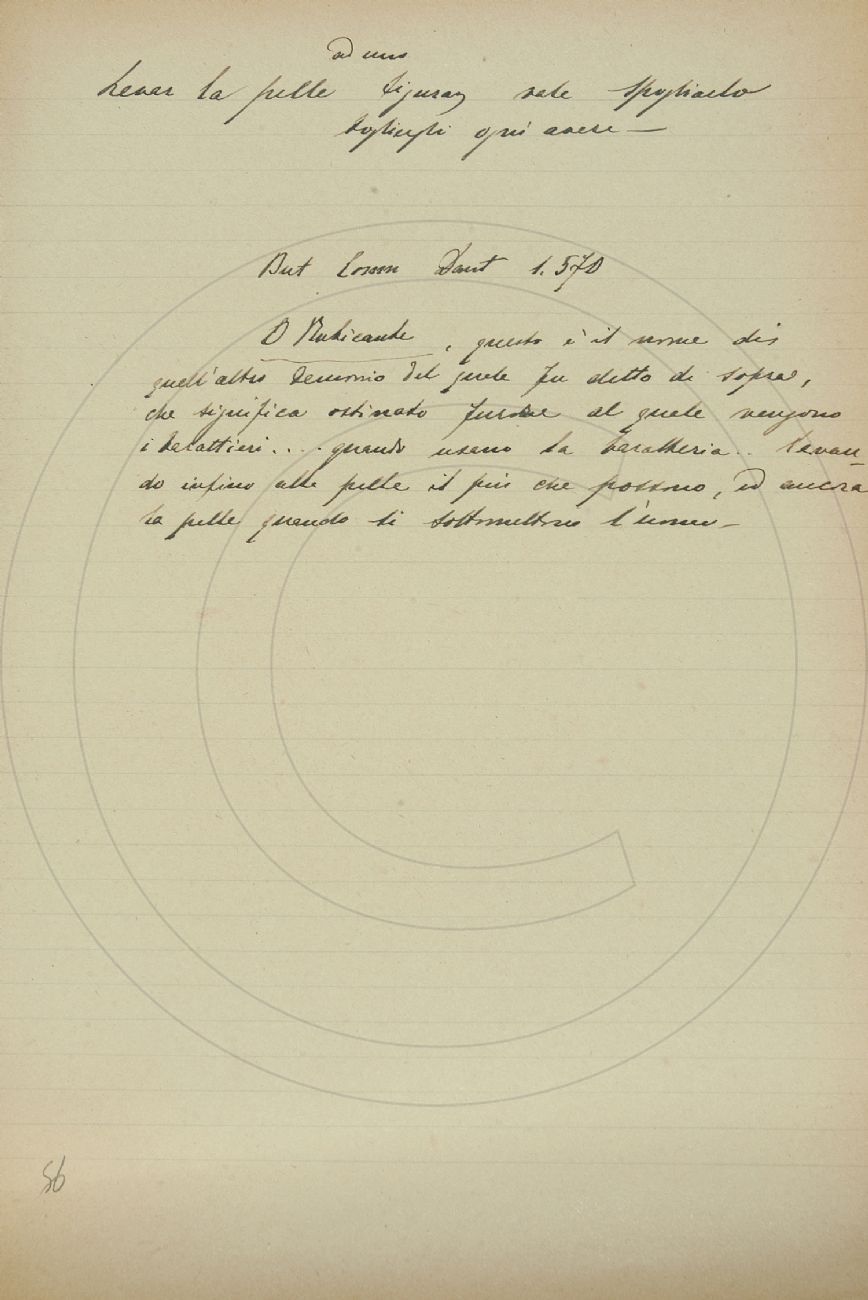 ad uno
Levar la pelle figuraz vale Spogliarlo
togliergli ogni avere —
But Comm Dant 1. 570
O Rubicante, questo è il nome di
quell'altro demonio del quale fu detto di sopra,
che significa ostinato furore al quale vengono
i barattieri.... quando usano la baratteria.. levan-
do infino alla pelle il più che possono, ed ancora
la pelle quando si sottomettono l'uomo —
56